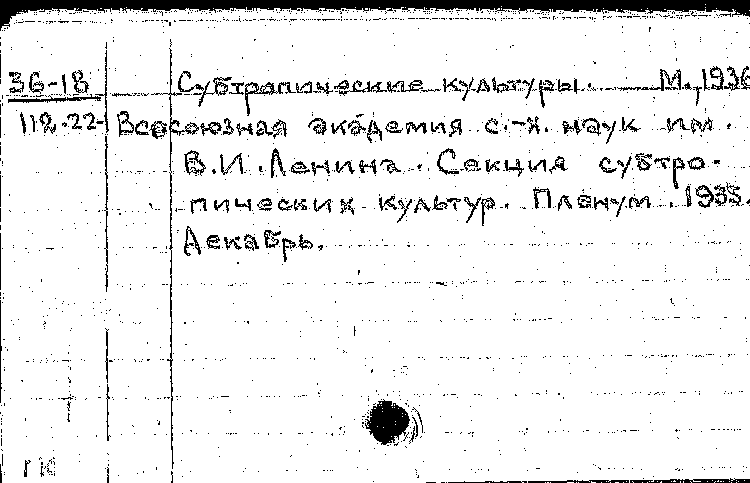 36-18 Субтропические культуры. М., 1936
112.22- Всесоюзная академия с.-х. наук им.
В.И. Ленина. Секция субтро-
пических культур. Пленум. 1935.
Декабрь.